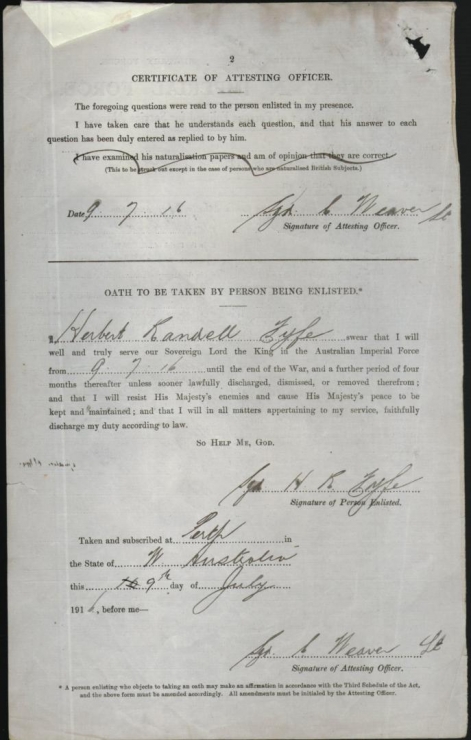 2
CERTIFICATE OF ATTESTING OFFICER.
The foregoing questions were read to the person enlisted in my presence.
I have taken care that he understands each question, and that his answer to each
question has been duly entered as replied to by him.
I have examined his naturalisation papers and am of opinion that they are correct.
(This to be struck out except in the case of persons who are naturalised British Subjects.)
Date 9 7 16 Sgd C Weaver Lt
Signature of Attesting Officer.
OATH TO BE TAKEN BY PERSON BEING ENLISTED.*
I Herbert Randell Fyfe swear that I will
well and truly serve our Sovereign Lord the King in the Australian Imperial Force
from 9 7 16 until the end of the War, and a further period of four
months thereafter unless sooner lawfully discharged, dismissed, or removed therefrom;
and that I will resist His Majesty's enemies and cause His Majesty's peace to be
kept and maintained; and that I will in all matters appertaining to my service, faithfully
discharge my duty according to law.
SO HELP ME, GOD.
Sgd H R Fyfe
Signature of Person Enlisted.
Taken and subscribed at Perth in
the State of W Australia
this 9th day of July
1916, before me—
Sgd C Weaver Lt
Signature of Attesting Officer.
* A person enlisting who objects to taking an oath may make an affirmation in accordance with the Third Schedule of the Act,
and the above form must be amended accordingly. All amendments must be initialed by the Attesting Officer.